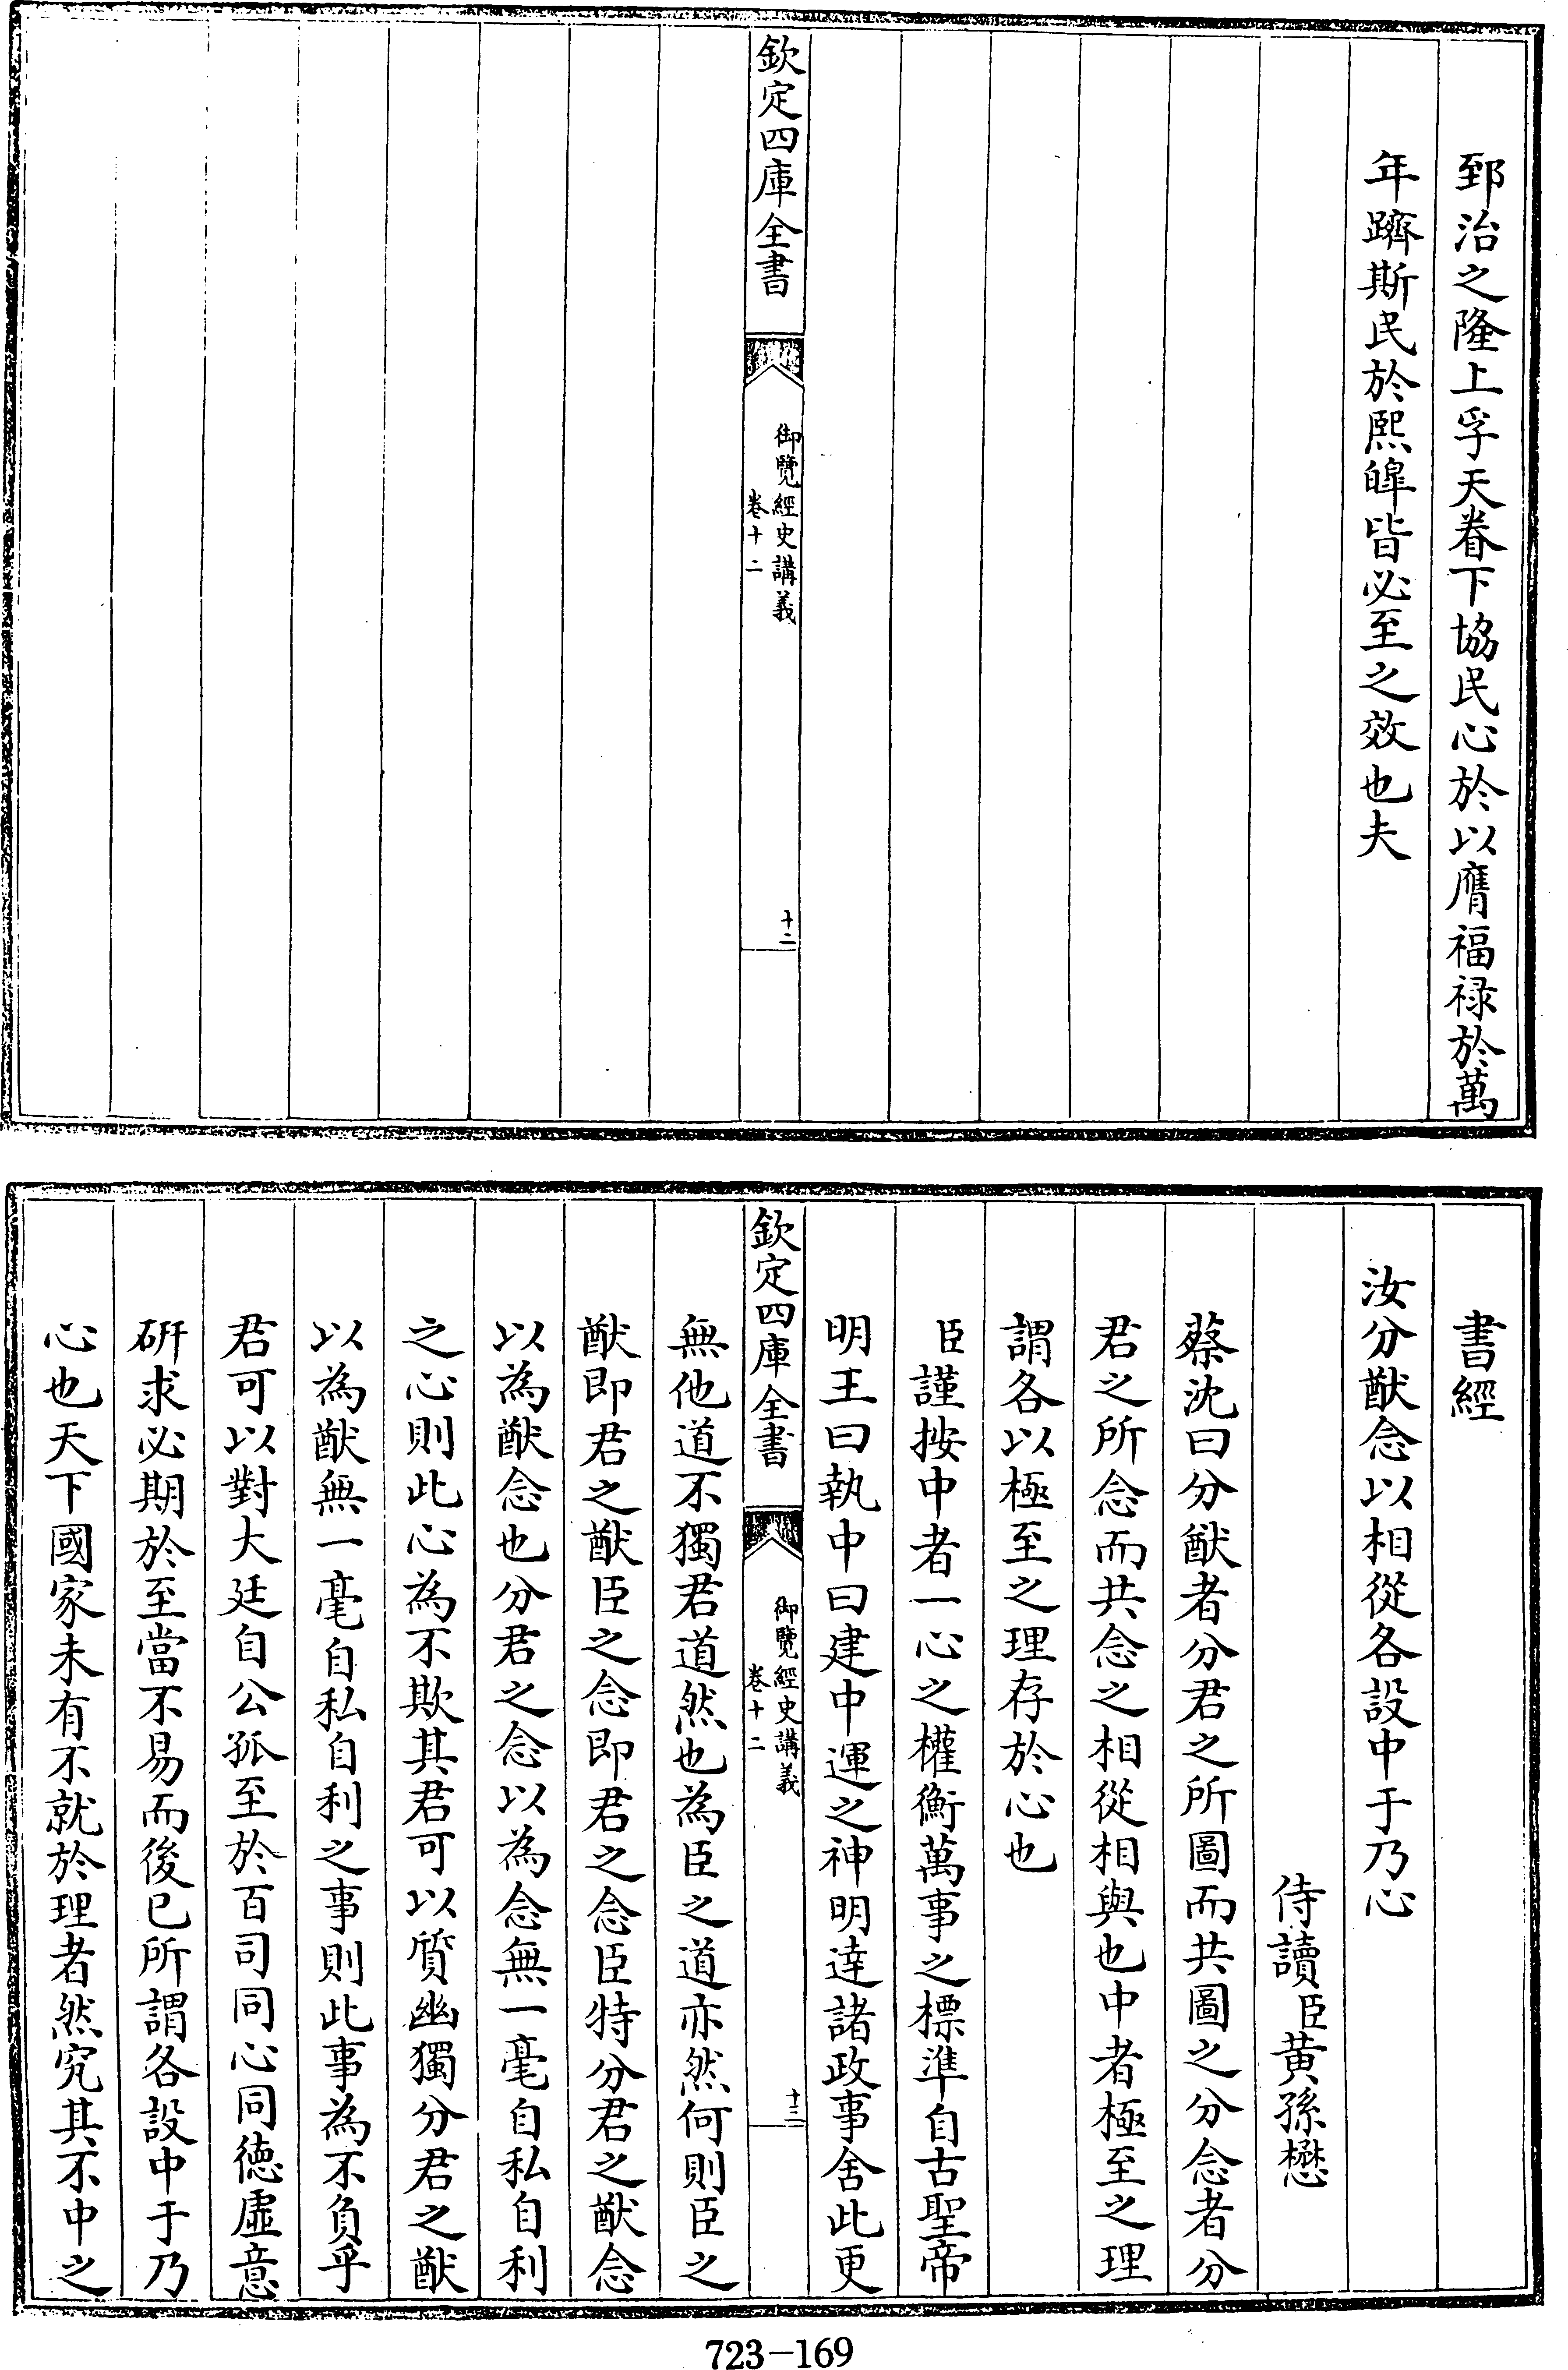 郅治之隆上孚天眷下協民心於以膺福禄於萬
年躋斯民於熙皡皆必至之效也夫
欽定四庫全書
御覽經史講義
卷十二
十二
書經
汝分猷念以相從各設中于乃心
侍讀臣黄孫懋
蔡沈曰分猷者分君之所圖而共圖之分念者分
君之所念而共念之相從相與也中者極至之理
謂各以極至之理存於心也
臣謹按中者一心之權衡萬事之標準自古聖帝
明王曰執中曰建中運之神明逹諸政事舍此更
欽定四庫全書
御覽經史講義
卷十二
十三
無他道不獨君道然也為臣之道亦然何則臣之
猷即君之猷臣之念即君之念臣特分君之猷念
以為猷念也分君之念以為念無一毫自私自利
之心則此心為不欺其君可以質幽獨分君之猷
以為猷無一毫自私自利之事則此事為不負乎
君可以對大廷自公孤至於百司同心同徳虛意
硏求必期於至當不易而後已所謂各設中于乃
心也天下國家未有不就於理者然究其不中之
723-169